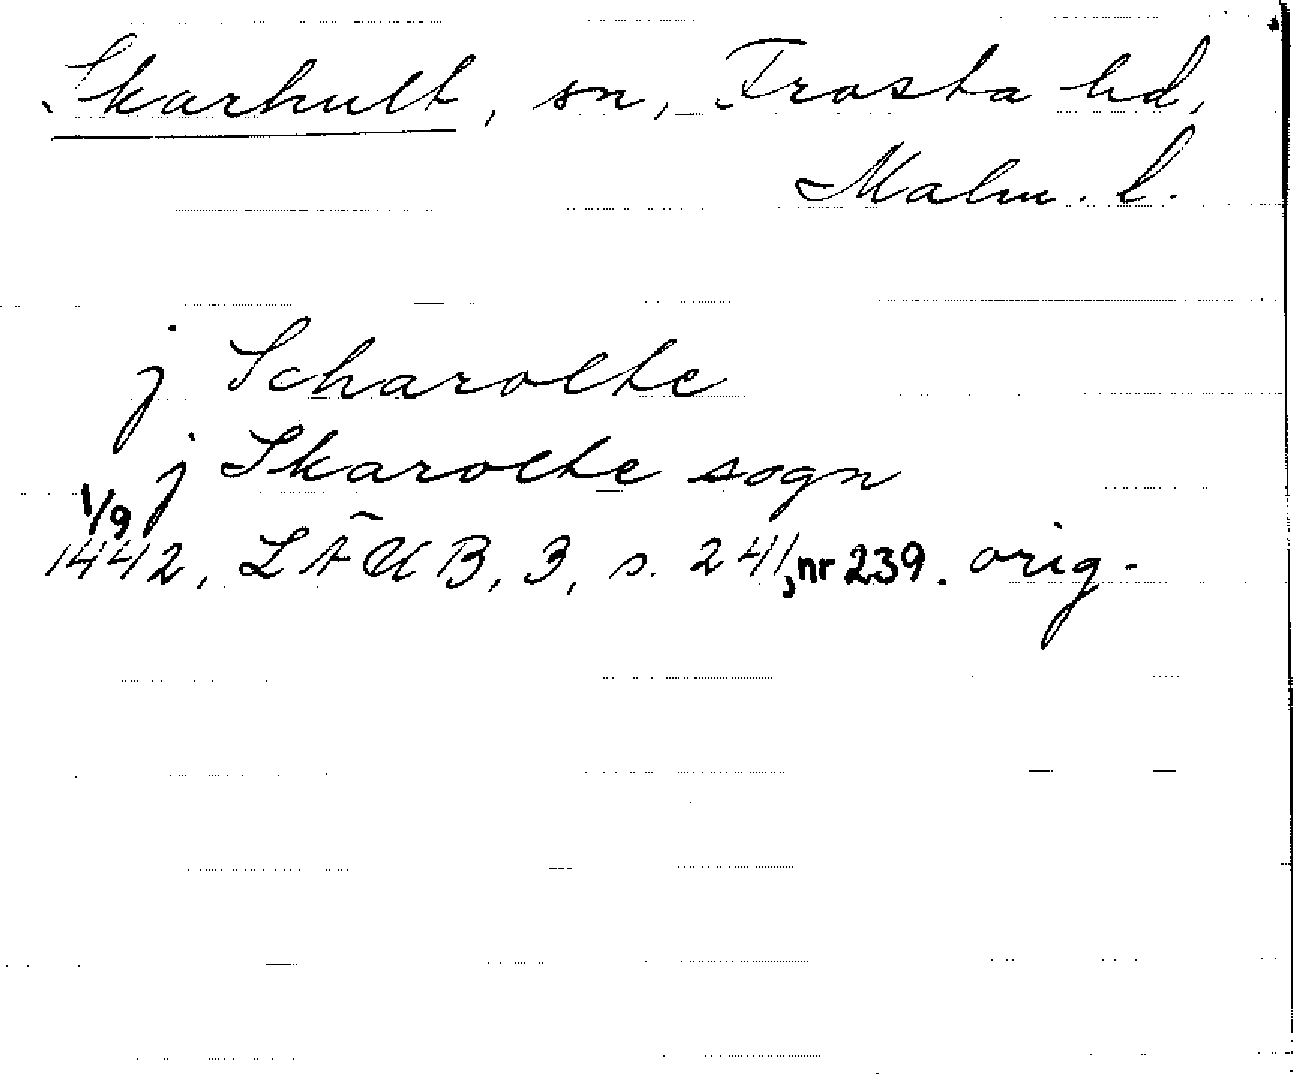 Skarhult, sn, Frosta hd,
Malm. l.
j Scharolte
j Skarolte sogn
1/9
1442, LÄUB, 3, s. 241, nr 239. orig.